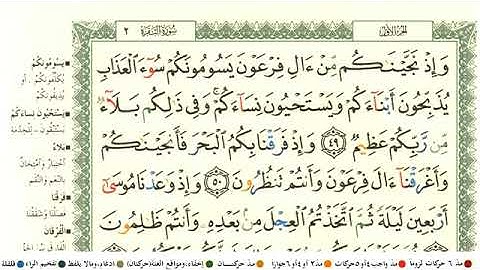 الجزء الأول
سورة البقرة ٢
وَإِذْ نَجَّيْنَٰكُم مِّنْ ءَالِ فِرْعَوْنَ يَسُومُونَكُمْ سُوٓءَ ٱلْعَذَابِ
يُذَبِّحُونَ أَبْنَآءَكُمْ وَيَسْتَحْيُونَ نِسَآءَكُمْ ۚ وَفِى ذَٰلِكُم بَلَآءٌ
مِّن رَّبِّكُمْ عَظِيمٌ ٤٩ وَإِذْ فَرَقْنَا بِكُمُ ٱلْبَحْرَ فَأَنجَيْنَٰكُمْ
وَأَغْرَقْنَآ ءَالَ فِرْعَوْنَ وَأَنتُمْ تَنظُرُونَ ٥٠ وَإِذْ وَٰعَدْنَا مُوسَىٰٓ
أَرْبَعِينَ لَيْلَةً ثُمَّ ٱتَّخَذْتُمُ ٱلْعِجْلَ مِنۢ بَعْدِهِۦ وَأَنتُمْ ظَٰلِمُونَ
يَسُومُونَكُمْ
يُكَلِّفُونَكُمْ . أو
يُذِيقُونَكُمْ
يَسْتَحْيُونَ نِسَاءَكُمْ
يَسْتَبْقُونَ - للخِدمَة
بَلَاءٌ
اختِبارٌ وامتِحَانٌ
بالنِّعَم والنِّقَم
فَرَقْنَا
فَصَلْنَا وشَقَقْنَا
الفُرْقَانَ
مدّ ٦ حركات لزوماً
مدّ واجب ٤ أو ٥ حركات
مدّ ٢ أو ٤ أو ٦ جوازاً
مدّ حركتان
إخفاء، ومواقع الغنة (حركتان)
ادغام، ومالا يلفظ
تفخيم الراء
قلقلة